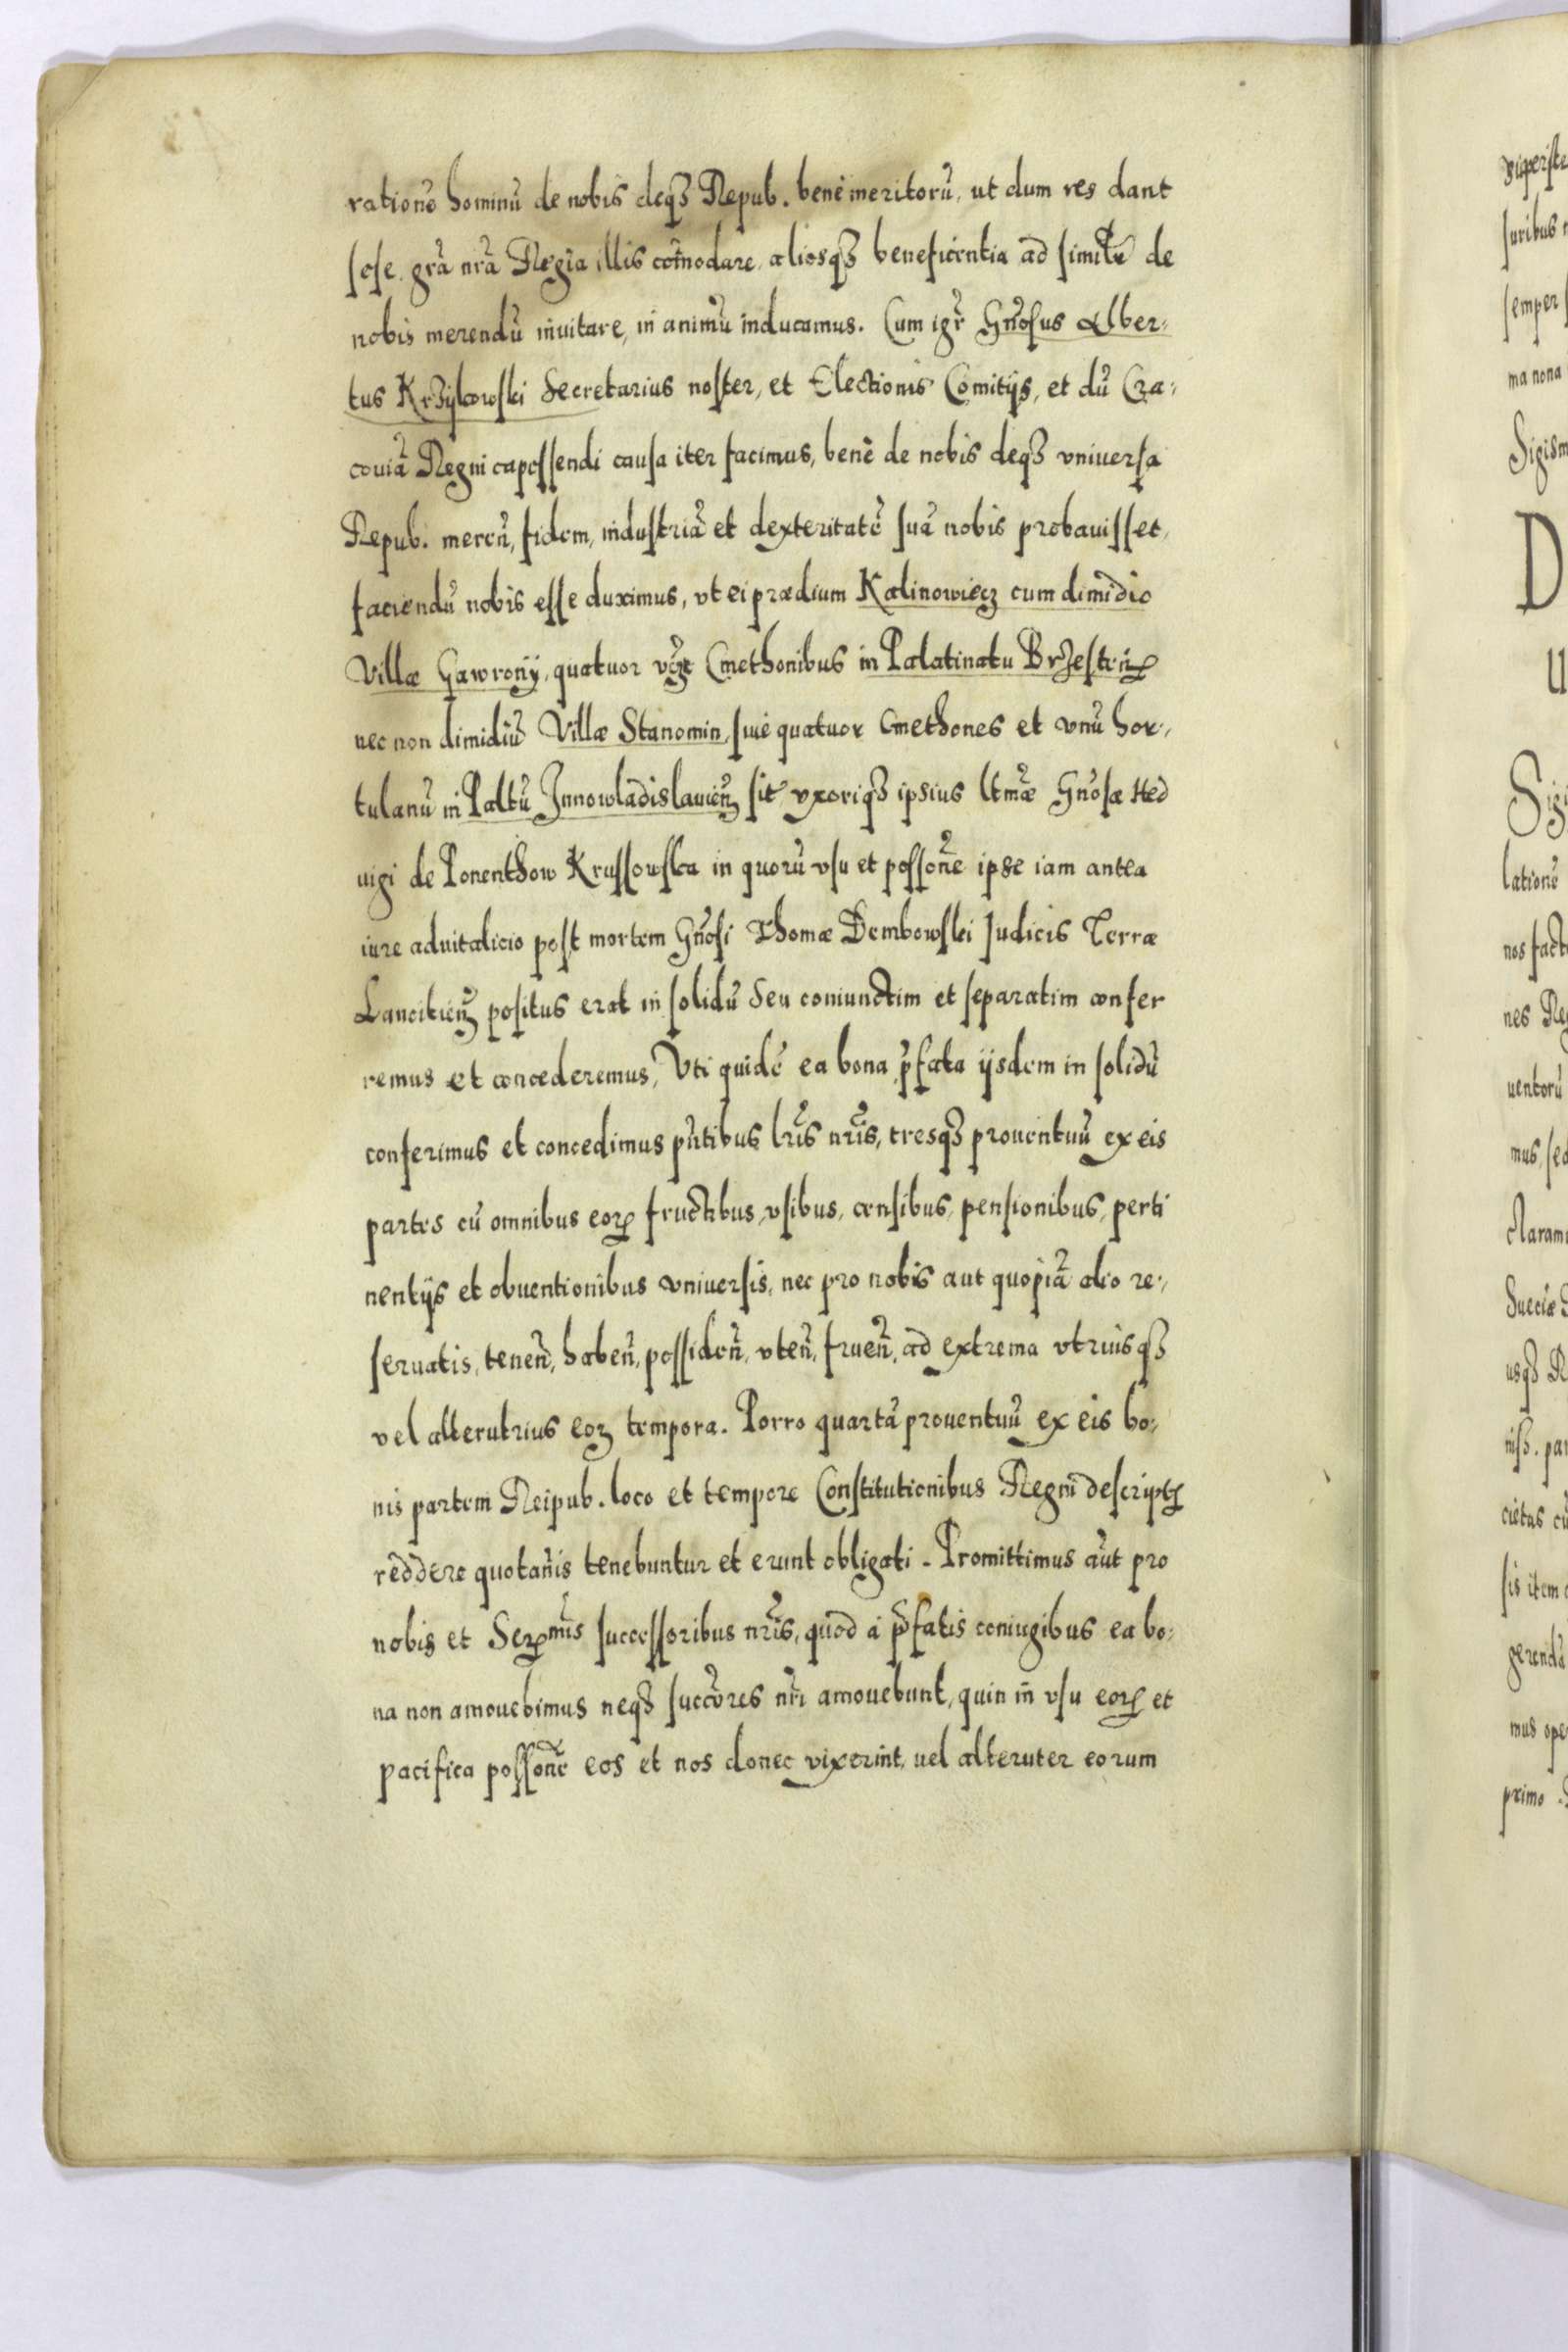 rationē hominū de nobis deq₃ Repub. benè meritorū, ut dum res dant
sese, grã nrã Regia illis cõmodare, aliosq₃ beneficentia ad similẽ de
nobis merendũ inuitare, in animũ inducamus. Cum igr̃ Gñosus Alber-
tus Krzÿkowski Secretarius noster, et Electionis Comitijs, et dũ Cra-
couiã Regni capessendi causa iter facimus, benè de nobis deq₃ vniuersa
Repub. mereñ, fidem, industriã et dexteritatẽ suã nobis probauisset,
faciendũ nobis esse duximus, vt ei prædium Kalinowiecz cum dimidio
Villæ Gawronÿ, quatuor vðzt Cmethonibus in Palatinatu Brzesteñ
nec non dimidiũ Villæ Stanomin, siuè quatuor Cmethones et vnũ hor-
tulanũ in Paltũ Innowladislauieñ sit̃ vxoriq₃ ipsius ltmæ̃ Gñosæ Hed
uigi de Ponenthow Krussowska in quorũ vsu et possoñe ipse iam antea
iure aduitalicio post mortem Gñosi Thomæ Dembowski Judicis Terræ
Lancitieñ positus erat in solidũ seu coniunctim et separatim confer
remus et concederemus, Vti quidẽ ea bona p̃fata ijsdem in solidũ
conferimus et concedimus pñtibus lr̃is nr̃is, tresq₃ prouentuũ ex eis
partes cũ omnibus eorꝝ fructibus, vsibus, censibus, pensionibus, perti
nentijs et obuentionibus vniuersis, nec pro nobis aut quopiã alio re-
seruatis, teneñ, habeñ, possideñ, vteñ, frueñ, ad extrema vtriusq₃
vel alterutrius eoꝝ tempora. Porro quartã prouentuũ ex eis bo-
nis partem Reipub. loco et tempore Constitutionibus Regni descriptꝭ
reddere quotañis tenebuntur et erunt obligati. Promittimus aũt pro
nobis et Serꝑmis successoribus nr̃is, quòd à p̃fatis coniugibus ea bo-
na non amouebimus neq₃ succ̃ores nr̃i amouebunt, quin iñ vsu eorꝝ et
pacifica possoñe eos et nos donec vixerint, uel alteruter eorum